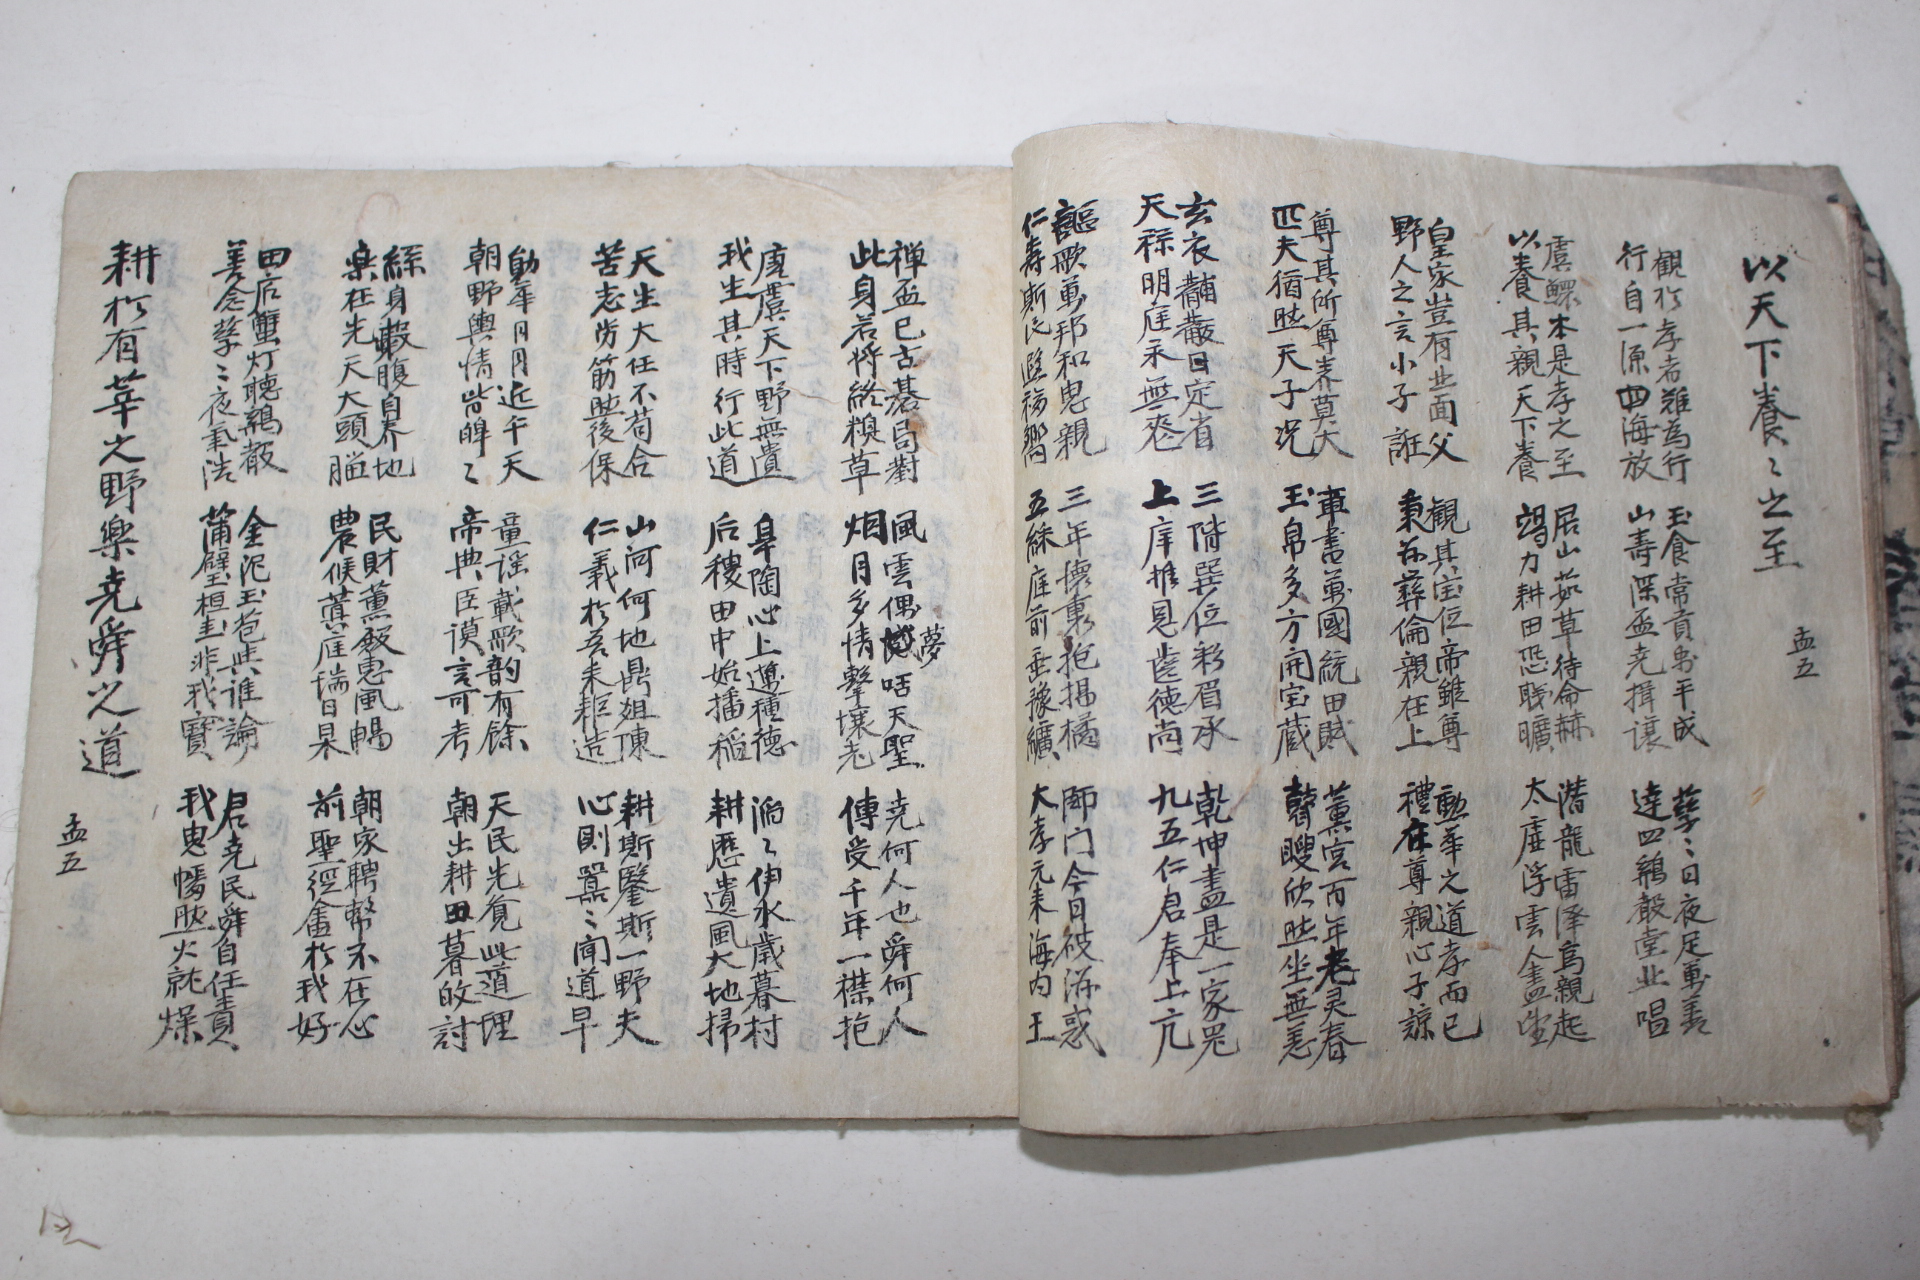 以天下養〻之至
孟五
觀於孝者難爲行
行自一源四海放
玉食常貢平成
山壽深盃堯揖讓
孳〻日夜足萬善
達四鷄聲堂此唱
虞鰥本是孝之至
以養其親天下養
居山茹草待命赫
竭力耕田恐職曠
潛龍雷澤爲親起
太虛浮雲人盡望
皇家豈有北面父
野人之言小子誑
觀其宝位帝雖尊
秉茲彛倫親在上
勳華之道孝而已
禮在尊親心子諒
尊其所尊養莫大
匹夫猶然天子況
車書萬國統田賦
玉帛多方開宝藏
薰宮百年老灵春
瞽瞍欣然坐無恙
玄衣黼黻日定省
天祿明庭永無
三階巽位彩眉承
上庠推恩齒德尚
乾坤盡是一家
九五仁君奉上亢
謳歌萬邦和鬼親
仁壽斯民遐福嚮
三年懷裏抱楊橘
五綵庭前垂豫纊
師门今日彼游惑
大孝元來海內王
禅盃已古碁局對
此身若將終糗草
風雲偶夢咶天聖
烟月多情擊壤老
堯何人也舜何人
傳受千年一襟抱
唐虞天下野無遺
我生其時行此道
皐陶心上邁種德
后稷田中始播稻
滔〻伊水歲暮村
耕歷遺風大地掃
天生大任不苟合
苦志勞筋然後保
山河何地鼎俎陳
仁義於吾耒耟造
耕斯鑿斯一野夫
心則囂〻聞道早
勛華日月近千天
朝野輿情皆皥〻
童謠載歌韵有餘
帝典臣謨言可考
天民先覓此道理
朝出耕田暮的討
絲身蝦腹自界地
樂在先天大頭腦
民財薰殿惠風暢
農候蓂庭瑞日杲
朝家聘幣不在心
前聖徑畬於我好
田启蟹灯聽鷄散
善念孳〻夜氣浩
金泥玉苞與誰論
蒲璧桓圭非我寶
君堯民舜自任責
我思幡然火就燥
耕於有莘之野樂堯舜之道
孟五